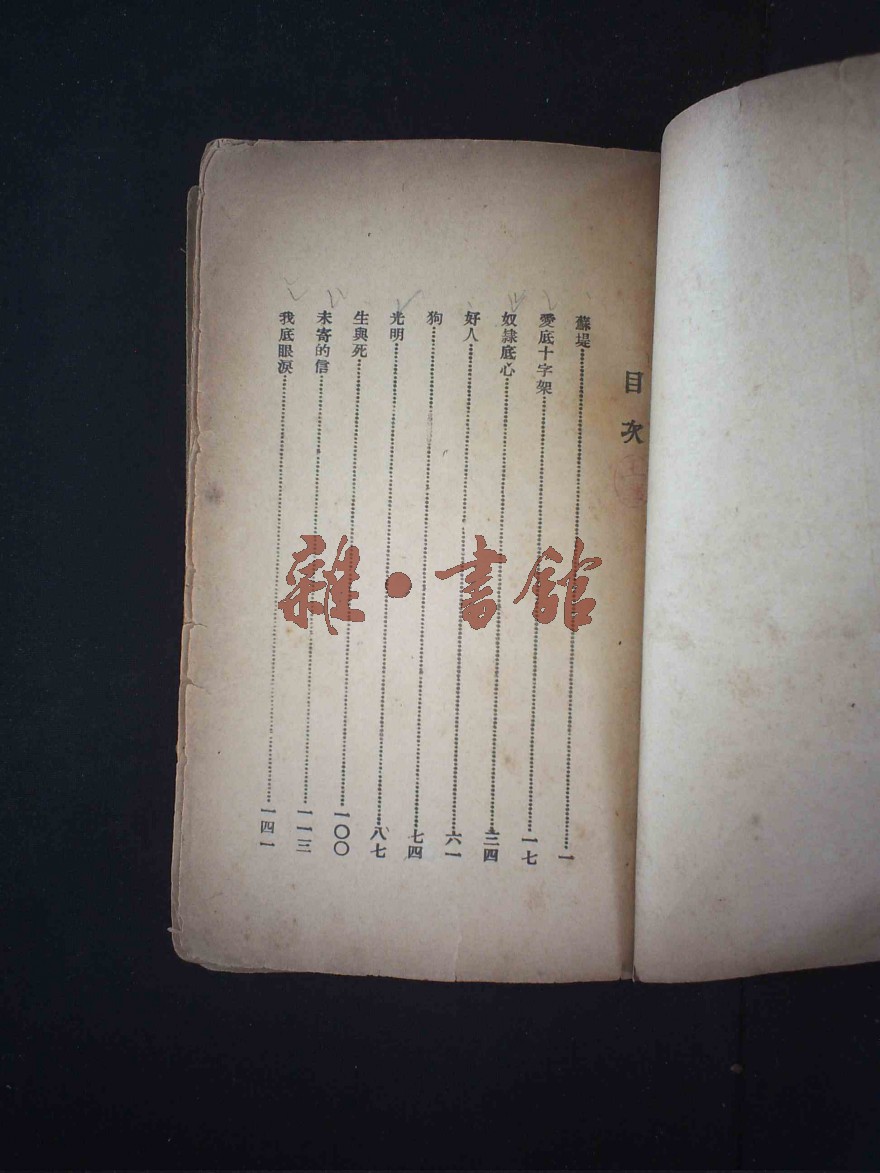 目次
蘇堤……一
愛底十字架……一七
奴隸底心……三四
好人……六一
狗……七四
光明……八七
生與死……一〇〇
未寄的信……一一三
我底眼淚……一四一
雜·書館